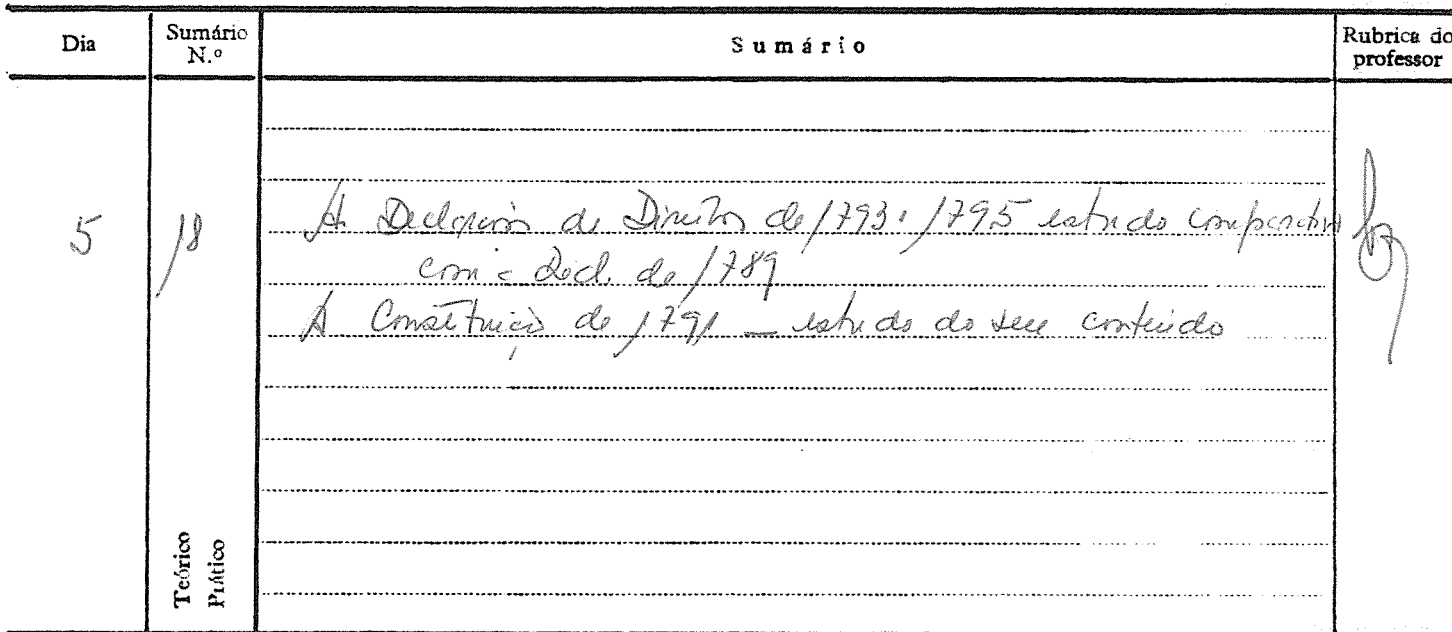 Dia
Sumário N.º
Sumário
Rubrica do professor
5
18
A Declaração de Direitos de 1793 1795 estudo comparativo
com a Decl. de 1789
A Constituição de 1791 — estudo do seu conteúdo
Teórico
Prático